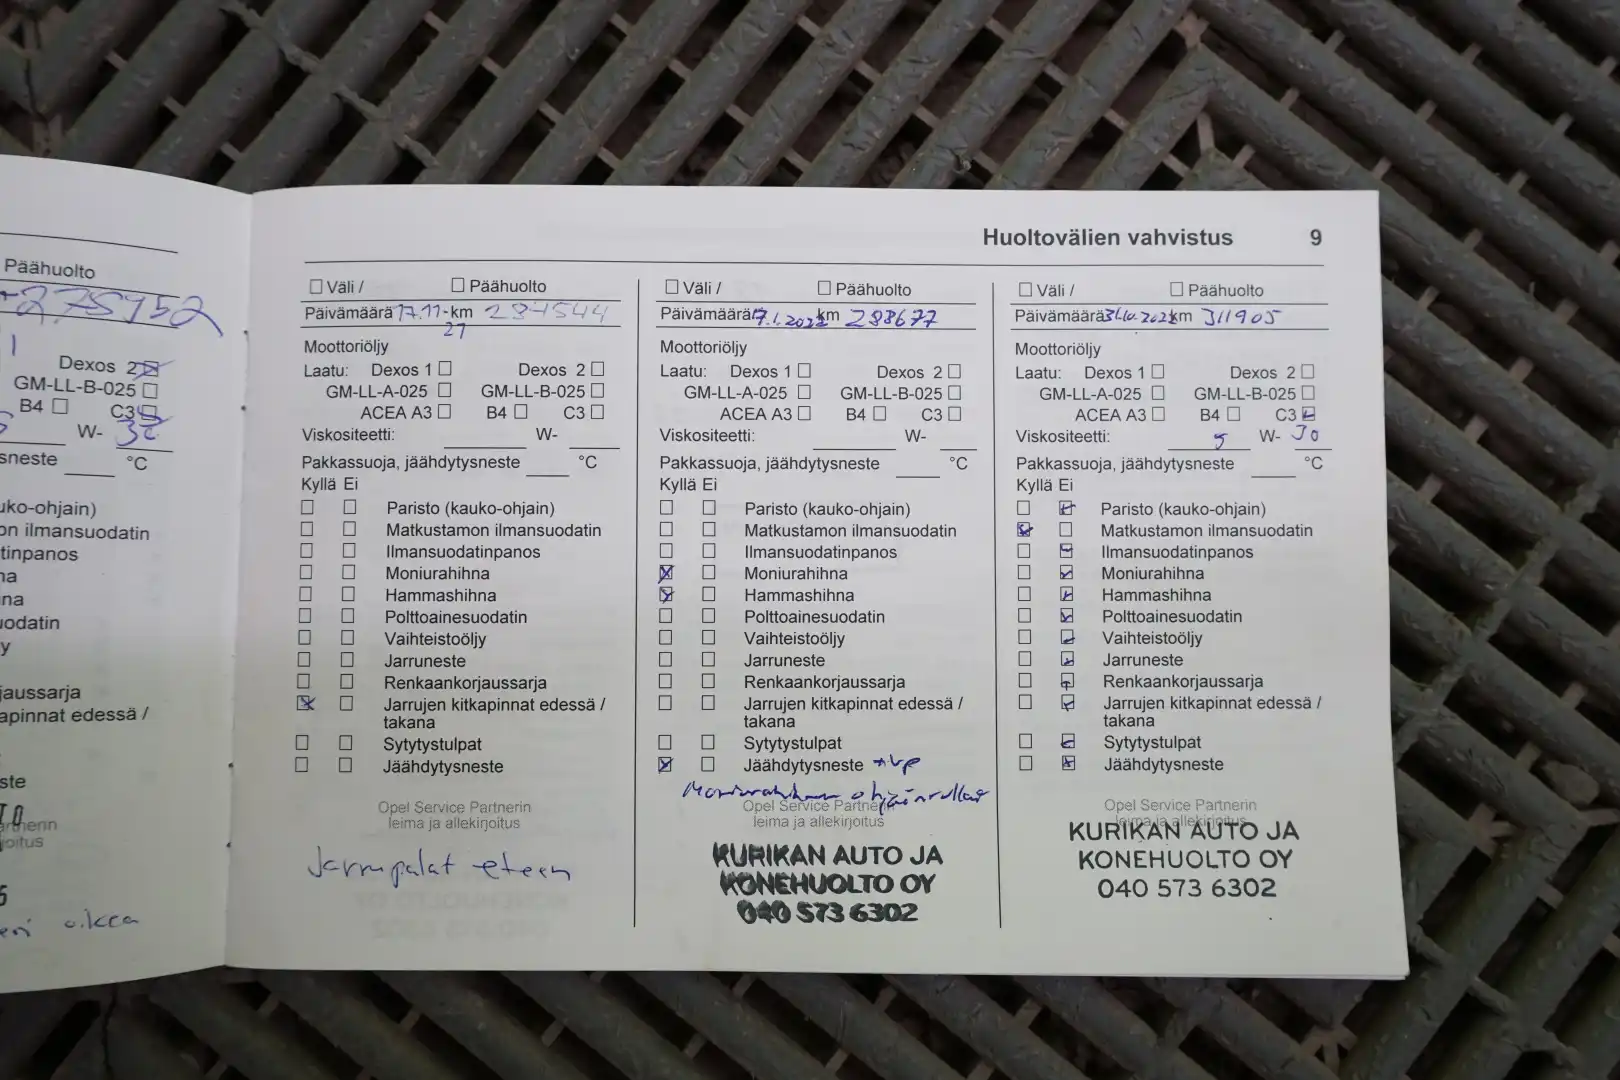 Päähuolto
275952
Dexos 2
GM-LL-B-025
B4 C3
W- 30
sneste °C
uko-ohjain)
on ilmansuodatin
tinpanos
na
na
uodatin
y
jaussarja
apinnat edessä /
ste
artnerin
joitus
oikea
Huoltovälien vahvistus 9
Väli / Päähuolto
Päivämäärä 17.11- km 284544
21
Moottoriöljy
Laatu: Dexos 1 Dexos 2
GM-LL-A-025 GM-LL-B-025
ACEA A3 B4 C3
Viskositeetti: W-
Pakkassuoja, jäähdytysneste °C
Kyllä Ei
Paristo (kauko-ohjain)
Matkustamon ilmansuodatin
Ilmansuodatinpanos
Moniurahihna
Hammashihna
Polttoainesuodatin
Vaihteistoöljy
Jarruneste
Renkaankorjaussarja
Jarrujen kitkapinnat edessä /
takana
Sytytystulpat
Jäähdytysneste
Opel Service Partnerin
leima ja allekirjoitus
Jarrupalat eteen
Väli / Päähuolto
Päivämäärä 17.1.2022 km 288677
Moottoriöljy
Laatu: Dexos 1 Dexos 2
GM-LL-A-025 GM-LL-B-025
ACEA A3 B4 C3
Viskositeetti: W-
Pakkassuoja, jäähdytysneste °C
Kyllä Ei
Paristo (kauko-ohjain)
Matkustamon ilmansuodatin
Ilmansuodatinpanos
Moniurahihna
Hammashihna
Polttoainesuodatin
Vaihteistoöljy
Jarruneste
Renkaankorjaussarja
Jarrujen kitkapinnat edessä /
takana
Sytytystulpat
Jäähdytysneste + vp
Moniurahihnan ohjainrullat
Opel Service Partnerin
leima ja allekirjoitus
KURIKAN AUTO JA
KONEHUOLTO OY
040 573 6302
Väli / Päähuolto
Päivämäärä 31.10.2022 km 311905
Moottoriöljy
Laatu: Dexos 1 Dexos 2
GM-LL-A-025 GM-LL-B-025
ACEA A3 B4 C3
Viskositeetti: 5 W- 30
Pakkassuoja, jäähdytysneste °C
Kyllä Ei
Paristo (kauko-ohjain)
Matkustamon ilmansuodatin
Ilmansuodatinpanos
Moniurahihna
Hammashihna
Polttoainesuodatin
Vaihteistoöljy
Jarruneste
Renkaankorjaussarja
Jarrujen kitkapinnat edessä /
takana
Sytytystulpat
Jäähdytysneste
Opel Service Partnerin
leima ja allekirjoitus
KURIKAN AUTO JA
KONEHUOLTO OY
040 573 6302